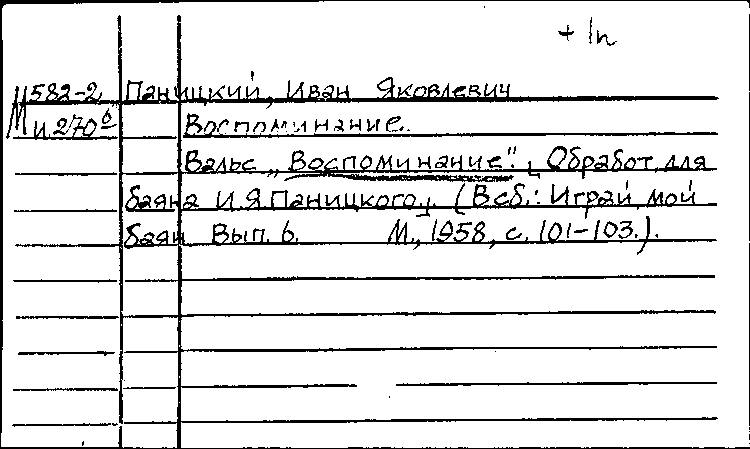 + 1n
М 582-2 Паницкий, Иван Яковлевич
и 270б Воспоминание.
Вальс „Воспоминание". [Обработ. для
баяна И.Я.Паницкого]. (В сб.: Играй, мой
баян Вып. 6. М., 1958, с. 101-103.).